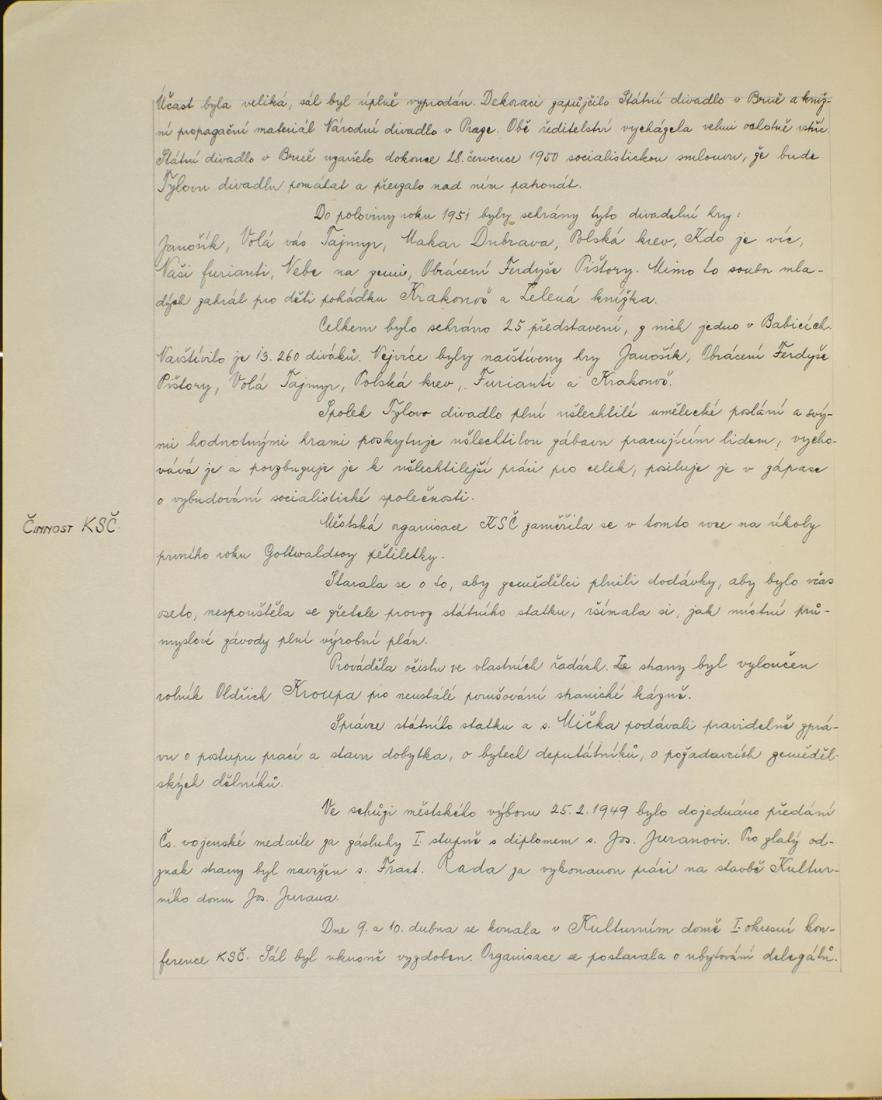 Účast byla veliká, sál byl úplně vyprodán. Dekoraci zapůjčilo Státní divadlo v Brně a kniž-
ní propagační materiál Národní divadlo v Praze. Obě ředitelství vycházela velmi ochotně vstříc.
Státní divadlo v Brně uzavřelo dokonce 28. července 1950 socialistickou smlouvu, že bude
Tylovu divadlu pomáhat a převzalo nad ním patronát.
Do poloviny roku 1951 byly sehrány tyto divadelní hry:
Janošík, Volá vás Tajmyr, Makar Dubrava, Polská krev, Kdo je víc,
Naši furianti, Nebe na zemi, Obrácení Ferdyše Pištory. Mimo to soubor mla-
dých zahrál pro děti pohádku Krakonoš a Zelená knížka.
Celkem bylo sehráno 25 představení, z nich jedno v Babicích.
Navštívilo je 13.260 diváků. Nejvíce byly navštíveny hry Janošík, Obrácení Ferdyše
Pištory, Volá Tajmyr, Polská krev, Furianti a Krakonoš.
Spolek Tylovo divadlo plní ušlechtilé umělecké poslání a svý-
mi hodnotnými hrami poskytuje ušlechtilou zábavu pracujícím lidem, vycho-
vává je a povzbuzuje je k ušlechtilejší práci pro celek, posiluje je v zápase
o vybudování socialistické společnosti.
Činnost KSČ.
Městská organisace KSČ zaměřila se v tomto roce na úkoly
prvního roku Gottwaldovy pětiletky.
Starala se o to, aby zemědělci plnili dodávky, aby bylo včas
oseto, nespouštěla se zřetele provoz státního statku, všímala si, jak místní prů-
myslové závody plní výrobní plán.
Prováděla očistu ve vlastních řadách. Ze strany byl vyloučen
rolník Oldřich Kroupa pro neustálé porušování stranické kázně.
Správce státního statku a s. Mička podávali pravidelně zprá-
vu o postupu prací a stavu dobytka, o bytech deputátníků, o požadavcích zeměděl-
ských dělníků.
Ve schůzi městského výboru 25.2.1949 bylo dojednáno předání
Čs. vojenské medaile za zásluhy I. stupně s diplomem s. Jos. Juranovi. Pro zlatý od-
znak strany byl navržen s. Frant. Rada za vykonanou práci na stavbě Kultur-
ního domu Jos. Jurana.
Dne 9. a 10. dubna se konala v Kulturním domě I. okresní kon-
ference KSČ. Sál byl vkusně vyzdoben. Organisace se postarala o ubytování delegátů.